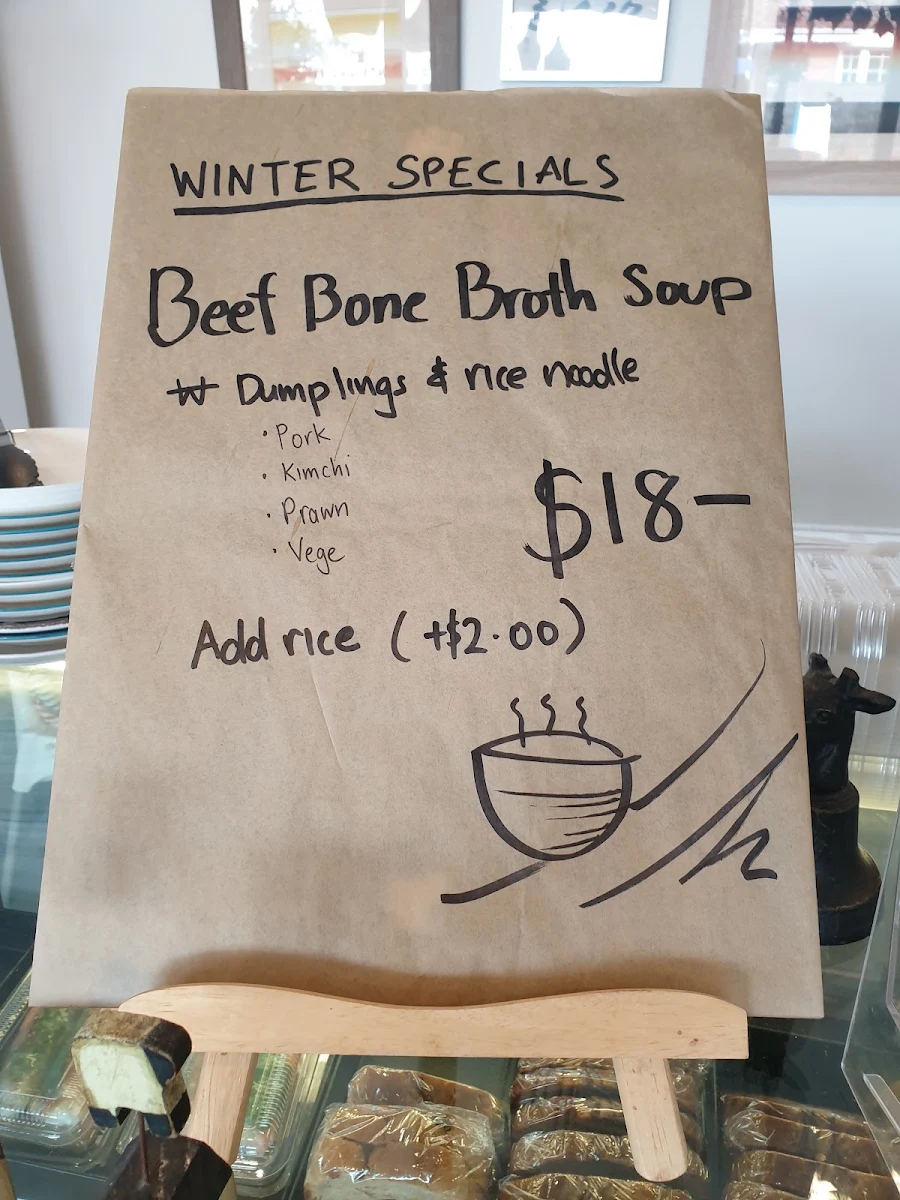 WINTER SPECIALS
Beef Bone Broth Soup
W Dumplings & rice noodle
· Pork
· Kimchi
· Prawn
· Vege
$18-
Add rice (+$2.00)